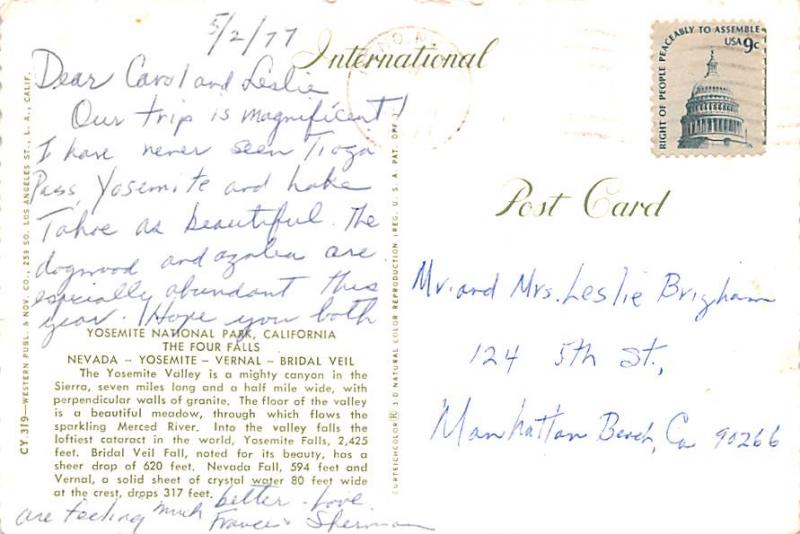 5/2/77
Dear Carol and Leslie
Our trip is magnificent!
I have never seen Tioga
Pass, Yosemite and Lake
Tahoe as beautiful. The
dogwood and azalea are
especially abundant this
year. I Hope you both
are feeling much better. Love.
Frances Sherman
YOSEMITE NATIONAL PARK, CALIFORNIA
THE FOUR FALLS
NEVADA – YOSEMITE – VERNAL – BRIDAL VEIL
The Yosemite Valley is a mighty canyon in the
Sierra, seven miles long and a half mile wide, with
perpendicular walls of granite. The floor of the valley
is a beautiful meadow, through which flows the
sparkling Merced River. Into the valley falls the
loftiest cataract in the world, Yosemite Falls, 2,425
feet. Bridal Veil Fall, noted for its beauty, has a
sheer drop of 620 feet. Nevada Fall, 594 feet and
Vernal, a solid sheet of crystal water 80 feet wide
at the crest, drops 317 feet.
CY 319—WESTERN PUBL. & NOV. CO., 259 SO. LOS ANGELES ST., L. A., CALIF.
CURTEICHCOLOR® 3-D NATURAL COLOR REPRODUCTION (REG. U. S. A. PAT. OFF.)
International
Post Card
RIGHT OF PEOPLE PEACEABLY TO ASSEMBLE
USA 9c
Mr. and Mrs. Leslie Brigham
124 5th St.,
Manhattan Beach, Ca 90266